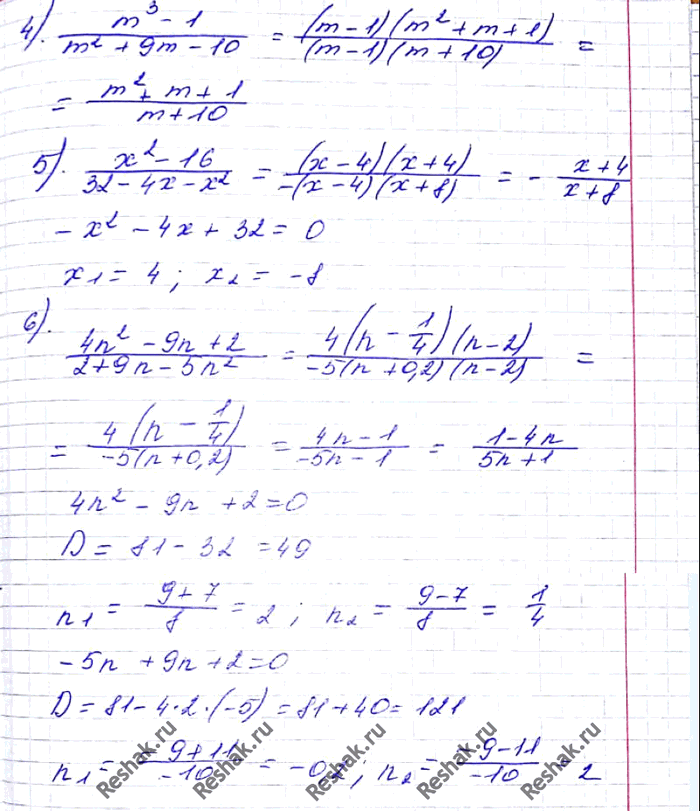 4). (m³ - 1)/(m² + 9m - 10) = ((m - 1)(m² + m + 1))/((m - 1)(m + 10)) =
= (m² + m + 1)/(m + 10)
5). (x² - 16)/(32 - 4x - x²) = ((x - 4)(x + 4))/(-(x - 4)(x + 8)) = - (x + 4)/(x + 8)
- x² - 4x + 32 = 0
x₁ = 4 ; x₂ = -8
6).
(4n² - 9n + 2)/(2 + 9n - 5n²) = (4(n - 1/4)(n - 2))/(-5(n + 0,2)(n - 2)) =
= (4(n - 1/4))/(-5(n + 0,2)) = (4n - 1)/(-5n - 1) = (1 - 4n)/(5n + 1)
4n² - 9n + 2 = 0
D = 81 - 32 = 49
n₁ = (9 + 7)/8 = 2 ; n₂ = (9 - 7)/8 = 1/4
-5n + 9n + 2 = 0
D = 81 - 4·2·(-5) = 81 + 40 = 121
n₁ = (-9 + 11)/(-10) = -0,2 ; n₂ = (-9 - 11)/(-10) = 2
Reshak.ru Reshak.ru Reshak.ru Reshak.ru